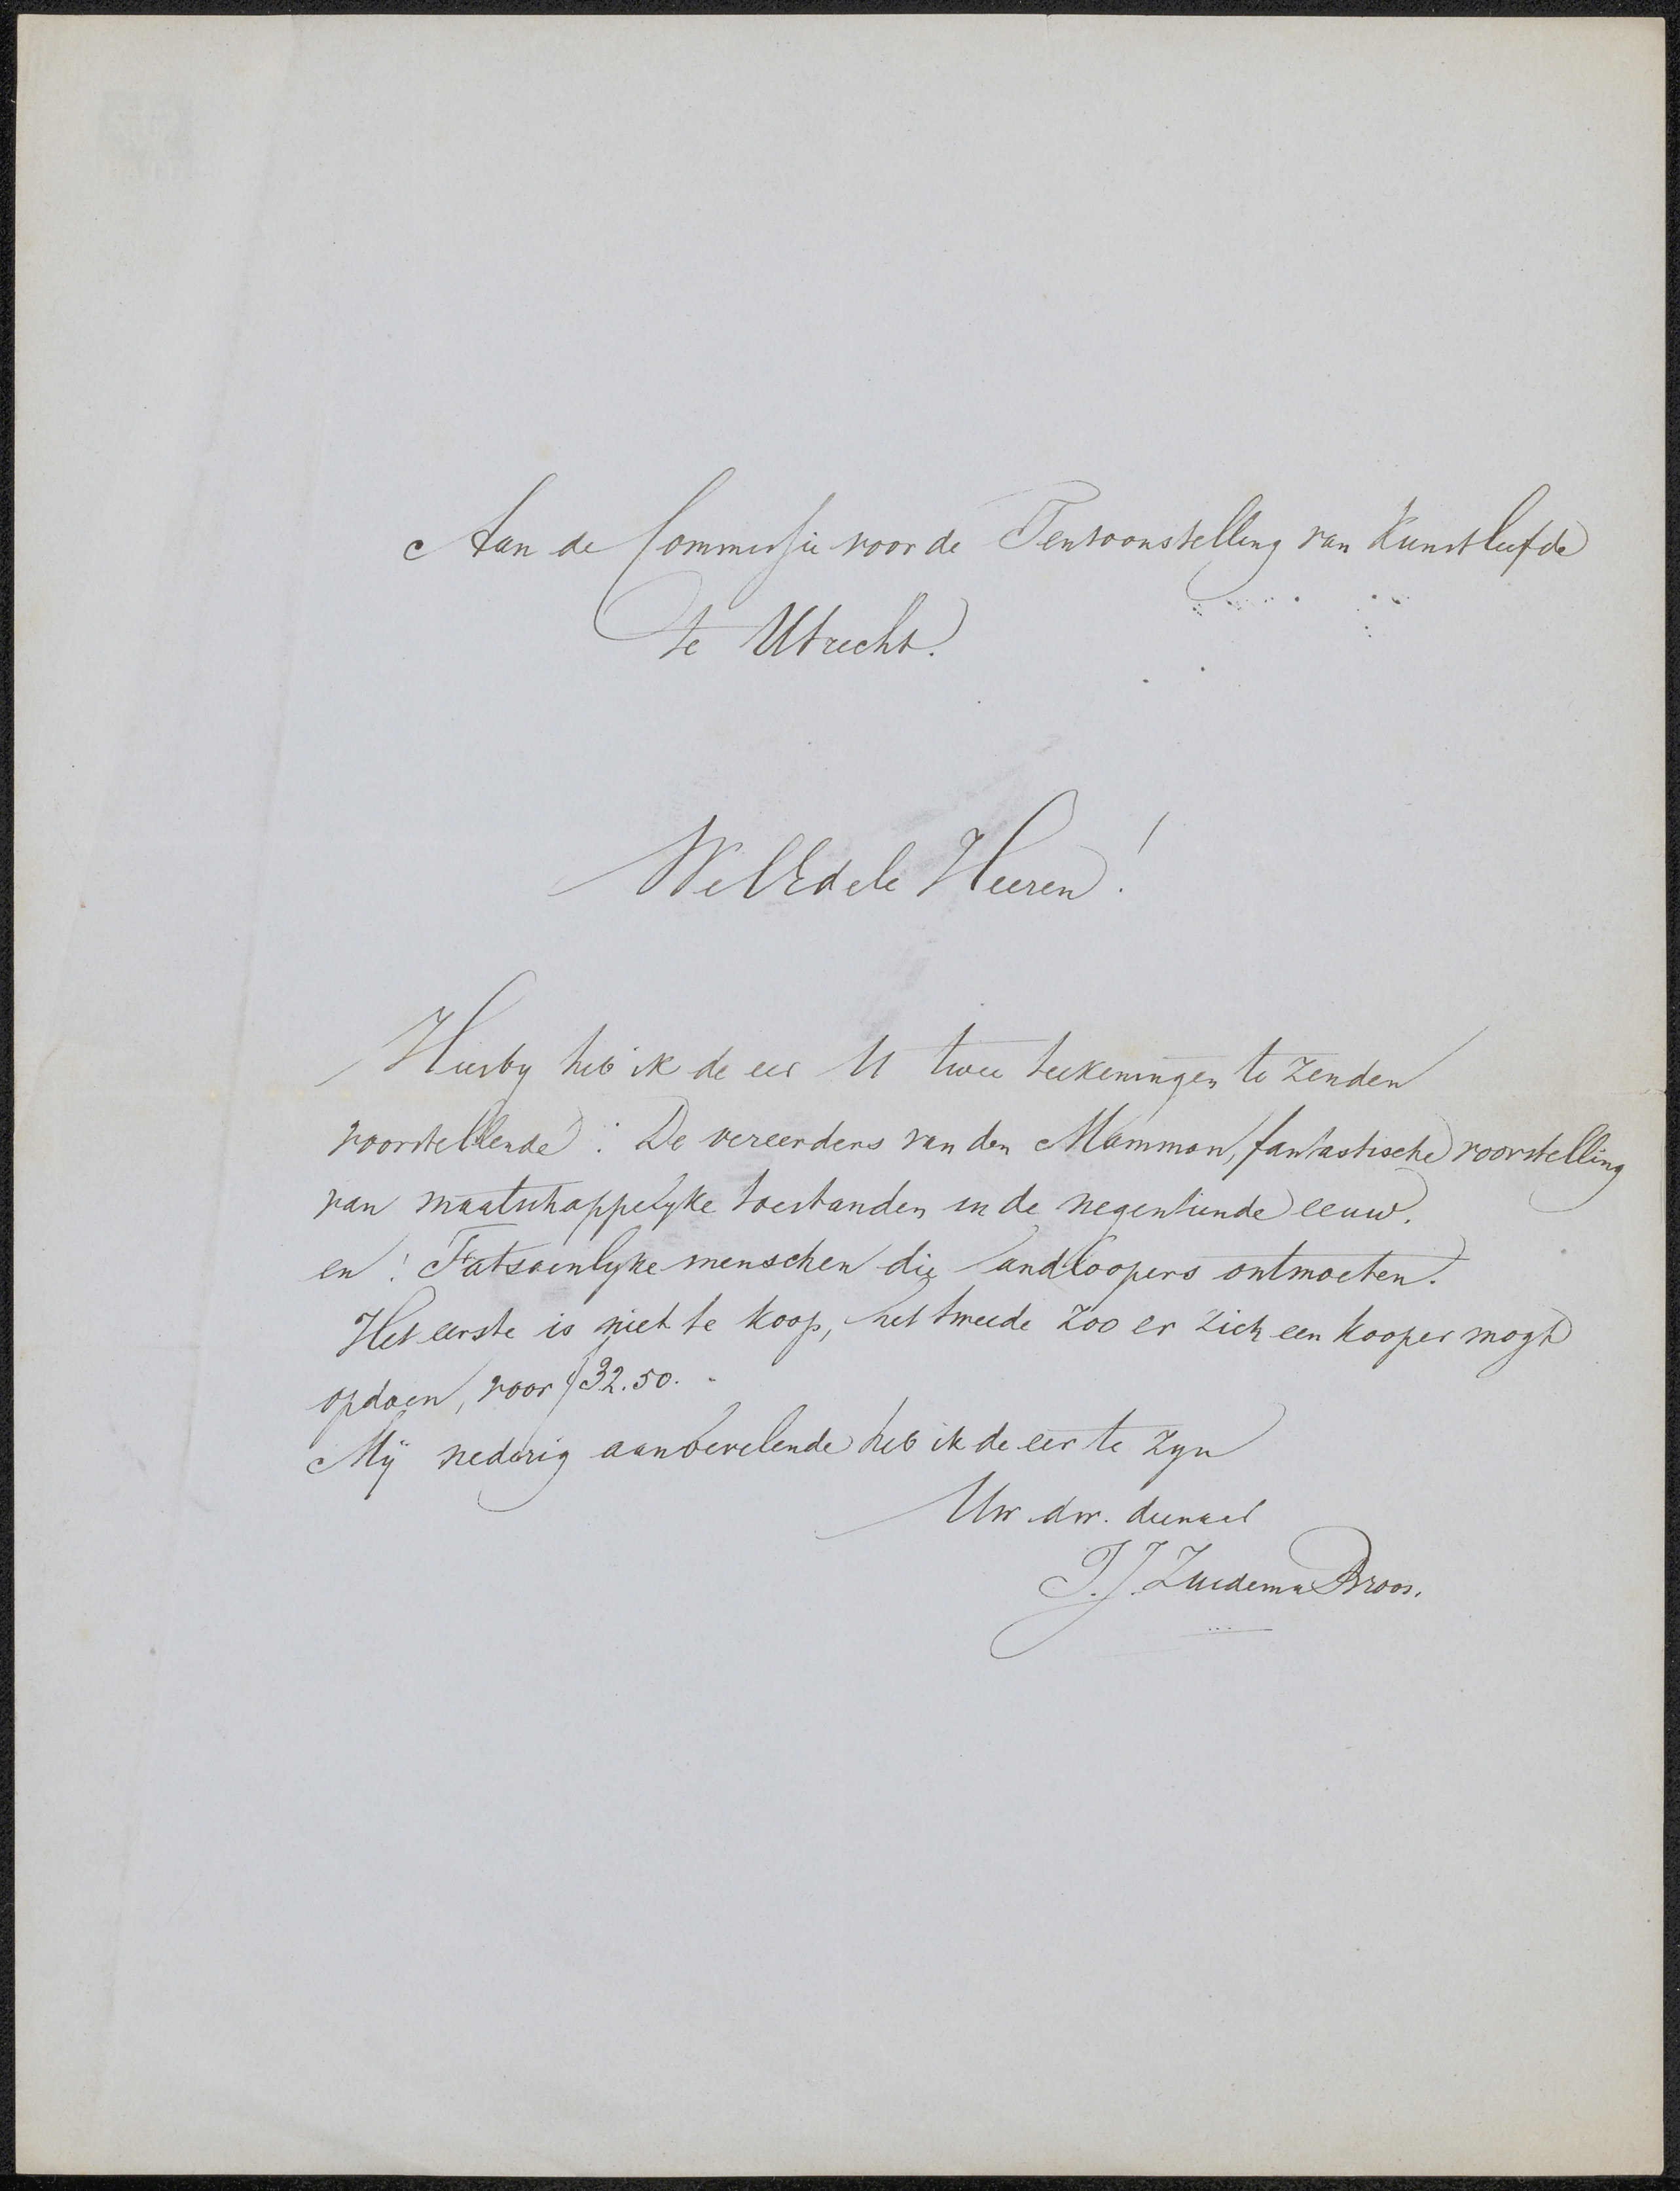 Aan de Commissie voor de Tentoonstelling van Kunstliefde
te Utrecht.
WelEdele Heeren!
Hierby heb ik de eer U twee teekeningen te zenden
voorstellende: De vereerders van den Mammon, fantastische voorstelling
van maatschappelyke toestanden in de negentiende eeuw.
en: Fatsoenlyke menschen die landloopers ontmoeten.
Het eerste is niet te koop, het tweede zoo er zich een kooper mogt
opdoen, voor ƒ32.50.
Mij nederig aanbevelende heb ik de eer te zyn
Uw dw. dienaar
T. J. Zuidema Broos.